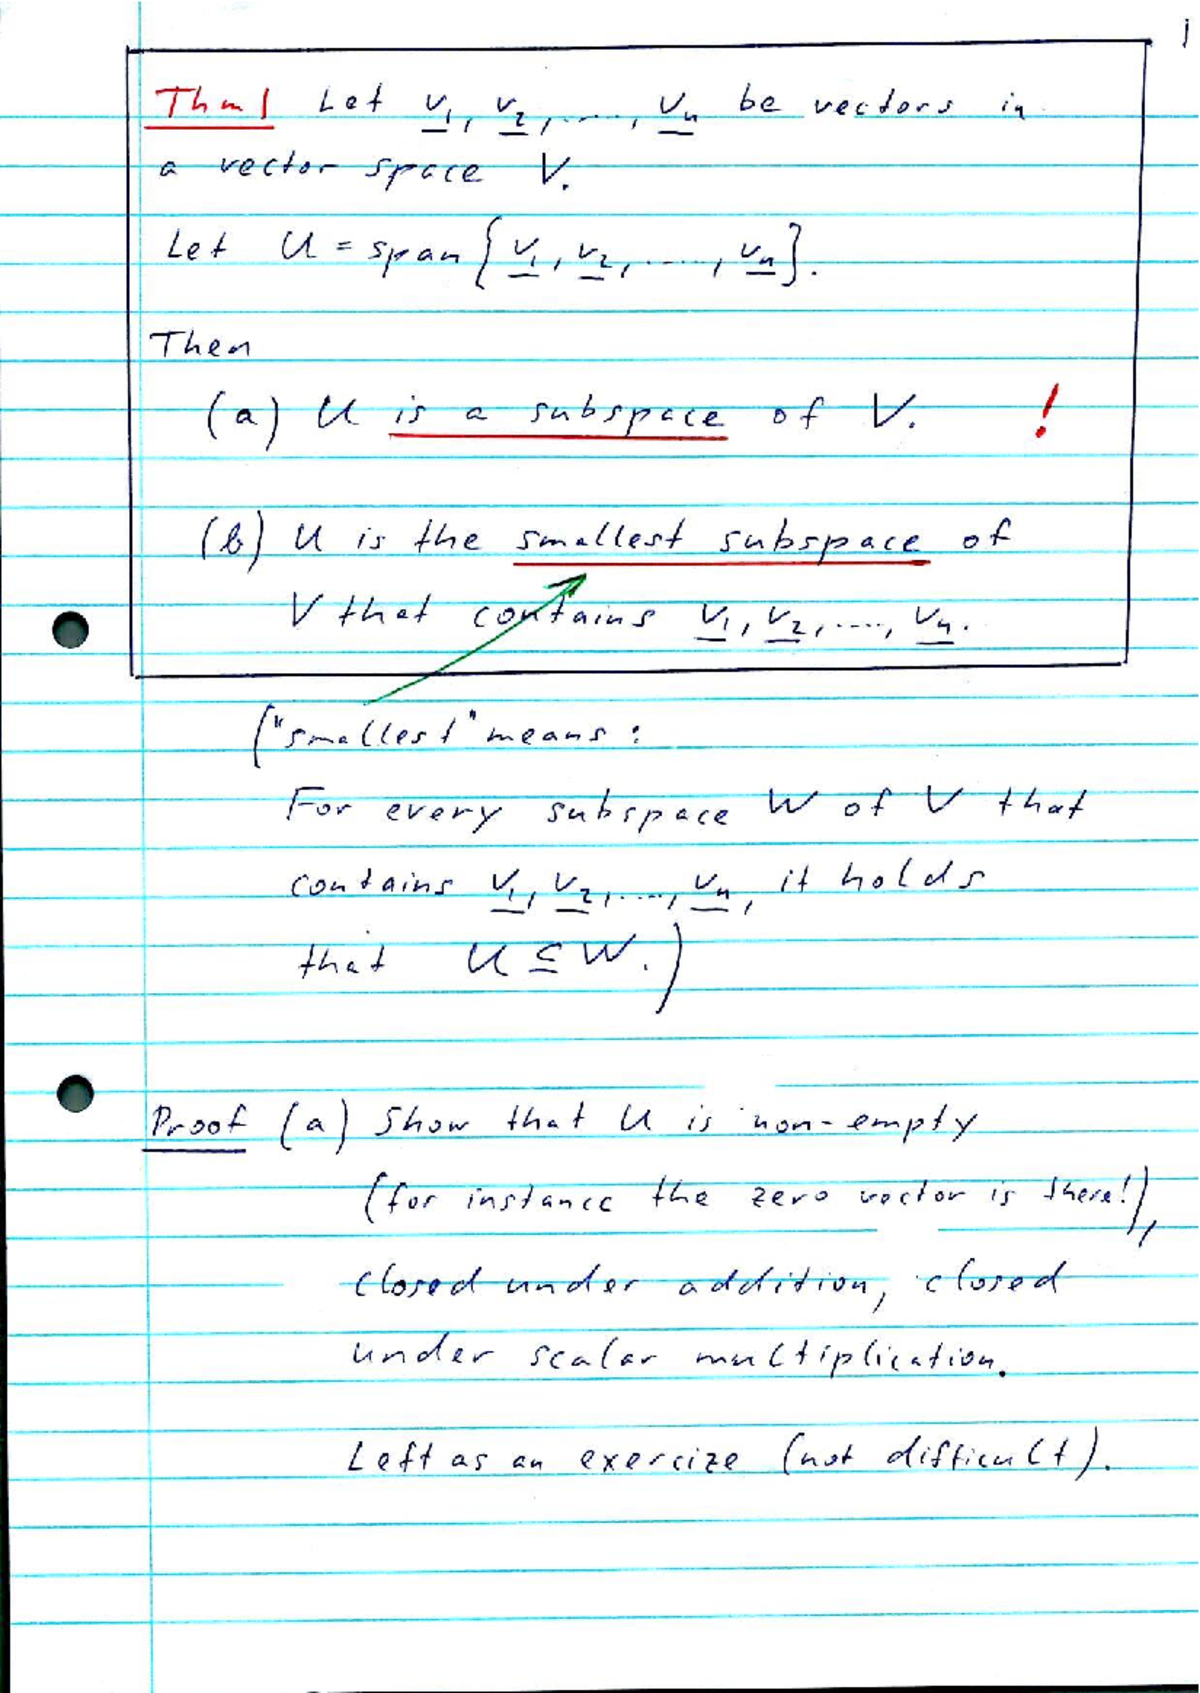 1
Thm 1 Let v₁, v₂, ....., vₙ be vectors in
a vector space V.
Let U = span {v₁, v₂, ....., vₙ}.
Then
(a) U is a subspace of V. !
(b) U is the smallest subspace of
V that contains v₁, v₂, ...., vₙ.
("smallest" means:
For every subspace W of V that
contains v₁, v₂, ...., vₙ, it holds
that U ⊆ W.)
Proof (a) Show that U is non-empty
(for instance the zero vector is there!),
closed under addition, closed
under scalar multiplication.
Left as an exercize (not difficult).